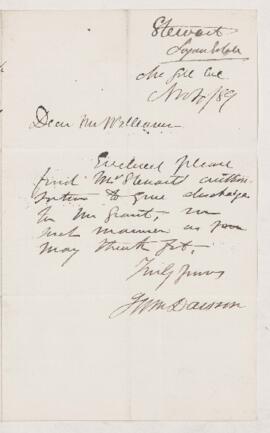 Stewart
McGill Col
Nov /89
Dear Mr Williamson
Enclosed please
find Mrs Stewarts autho-
rization to give discharge
to Mr Grant in
such manner as you
may think fit.
Truly yours
J Wm Dawson